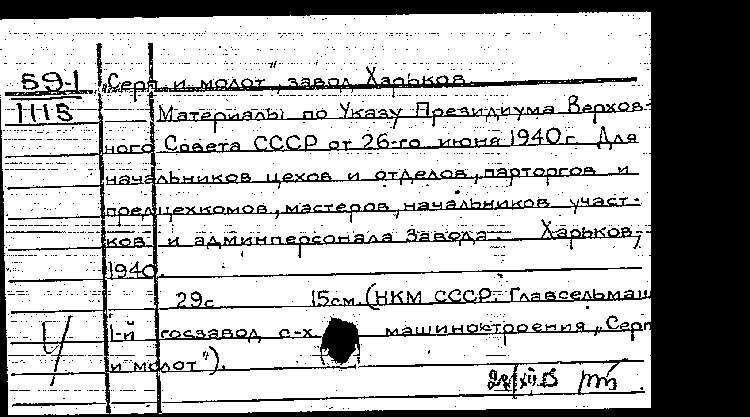 591
1115
„Серп и молот", завод Харьков.
Материалы по Указу Президиума Верхов-
ного Совета СССР от 26-го июня 1940 г. Для
начальников цехов и отделов, парторгов и
предцехкомов, мастеров, начальников участ-
ков и админперсонала завода — Харьков,
1940.
29с 15см. (НКМ СССР. Главсельмаш
1-й госзавод с-х машиностроения „Серп
и молот").